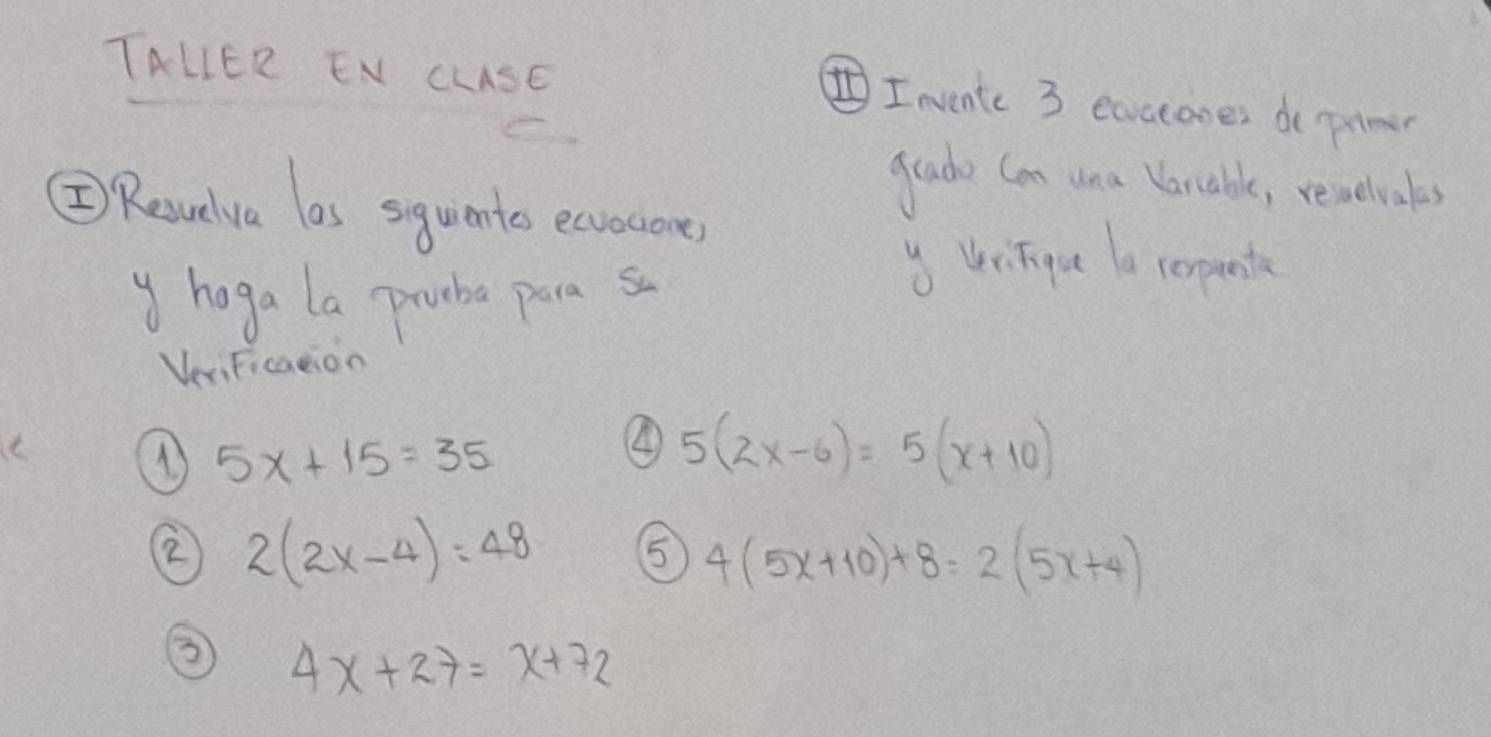 TALLER EN CLASE
I Resuelva las siguientes ecuaciones
y haga la prueba para su
Verificación
1 5x + 15 = 35
2 2(2x - 4) = 48
3 4x + 27 = x + 72
4 5(2x - 6) = 5(x + 10)
5 4(5x + 10) + 8 = 2(5x + 4)
II Invente 3 ecuaciones de primer
grado con una Variable, resuelvalas
y Verifique la respuesta